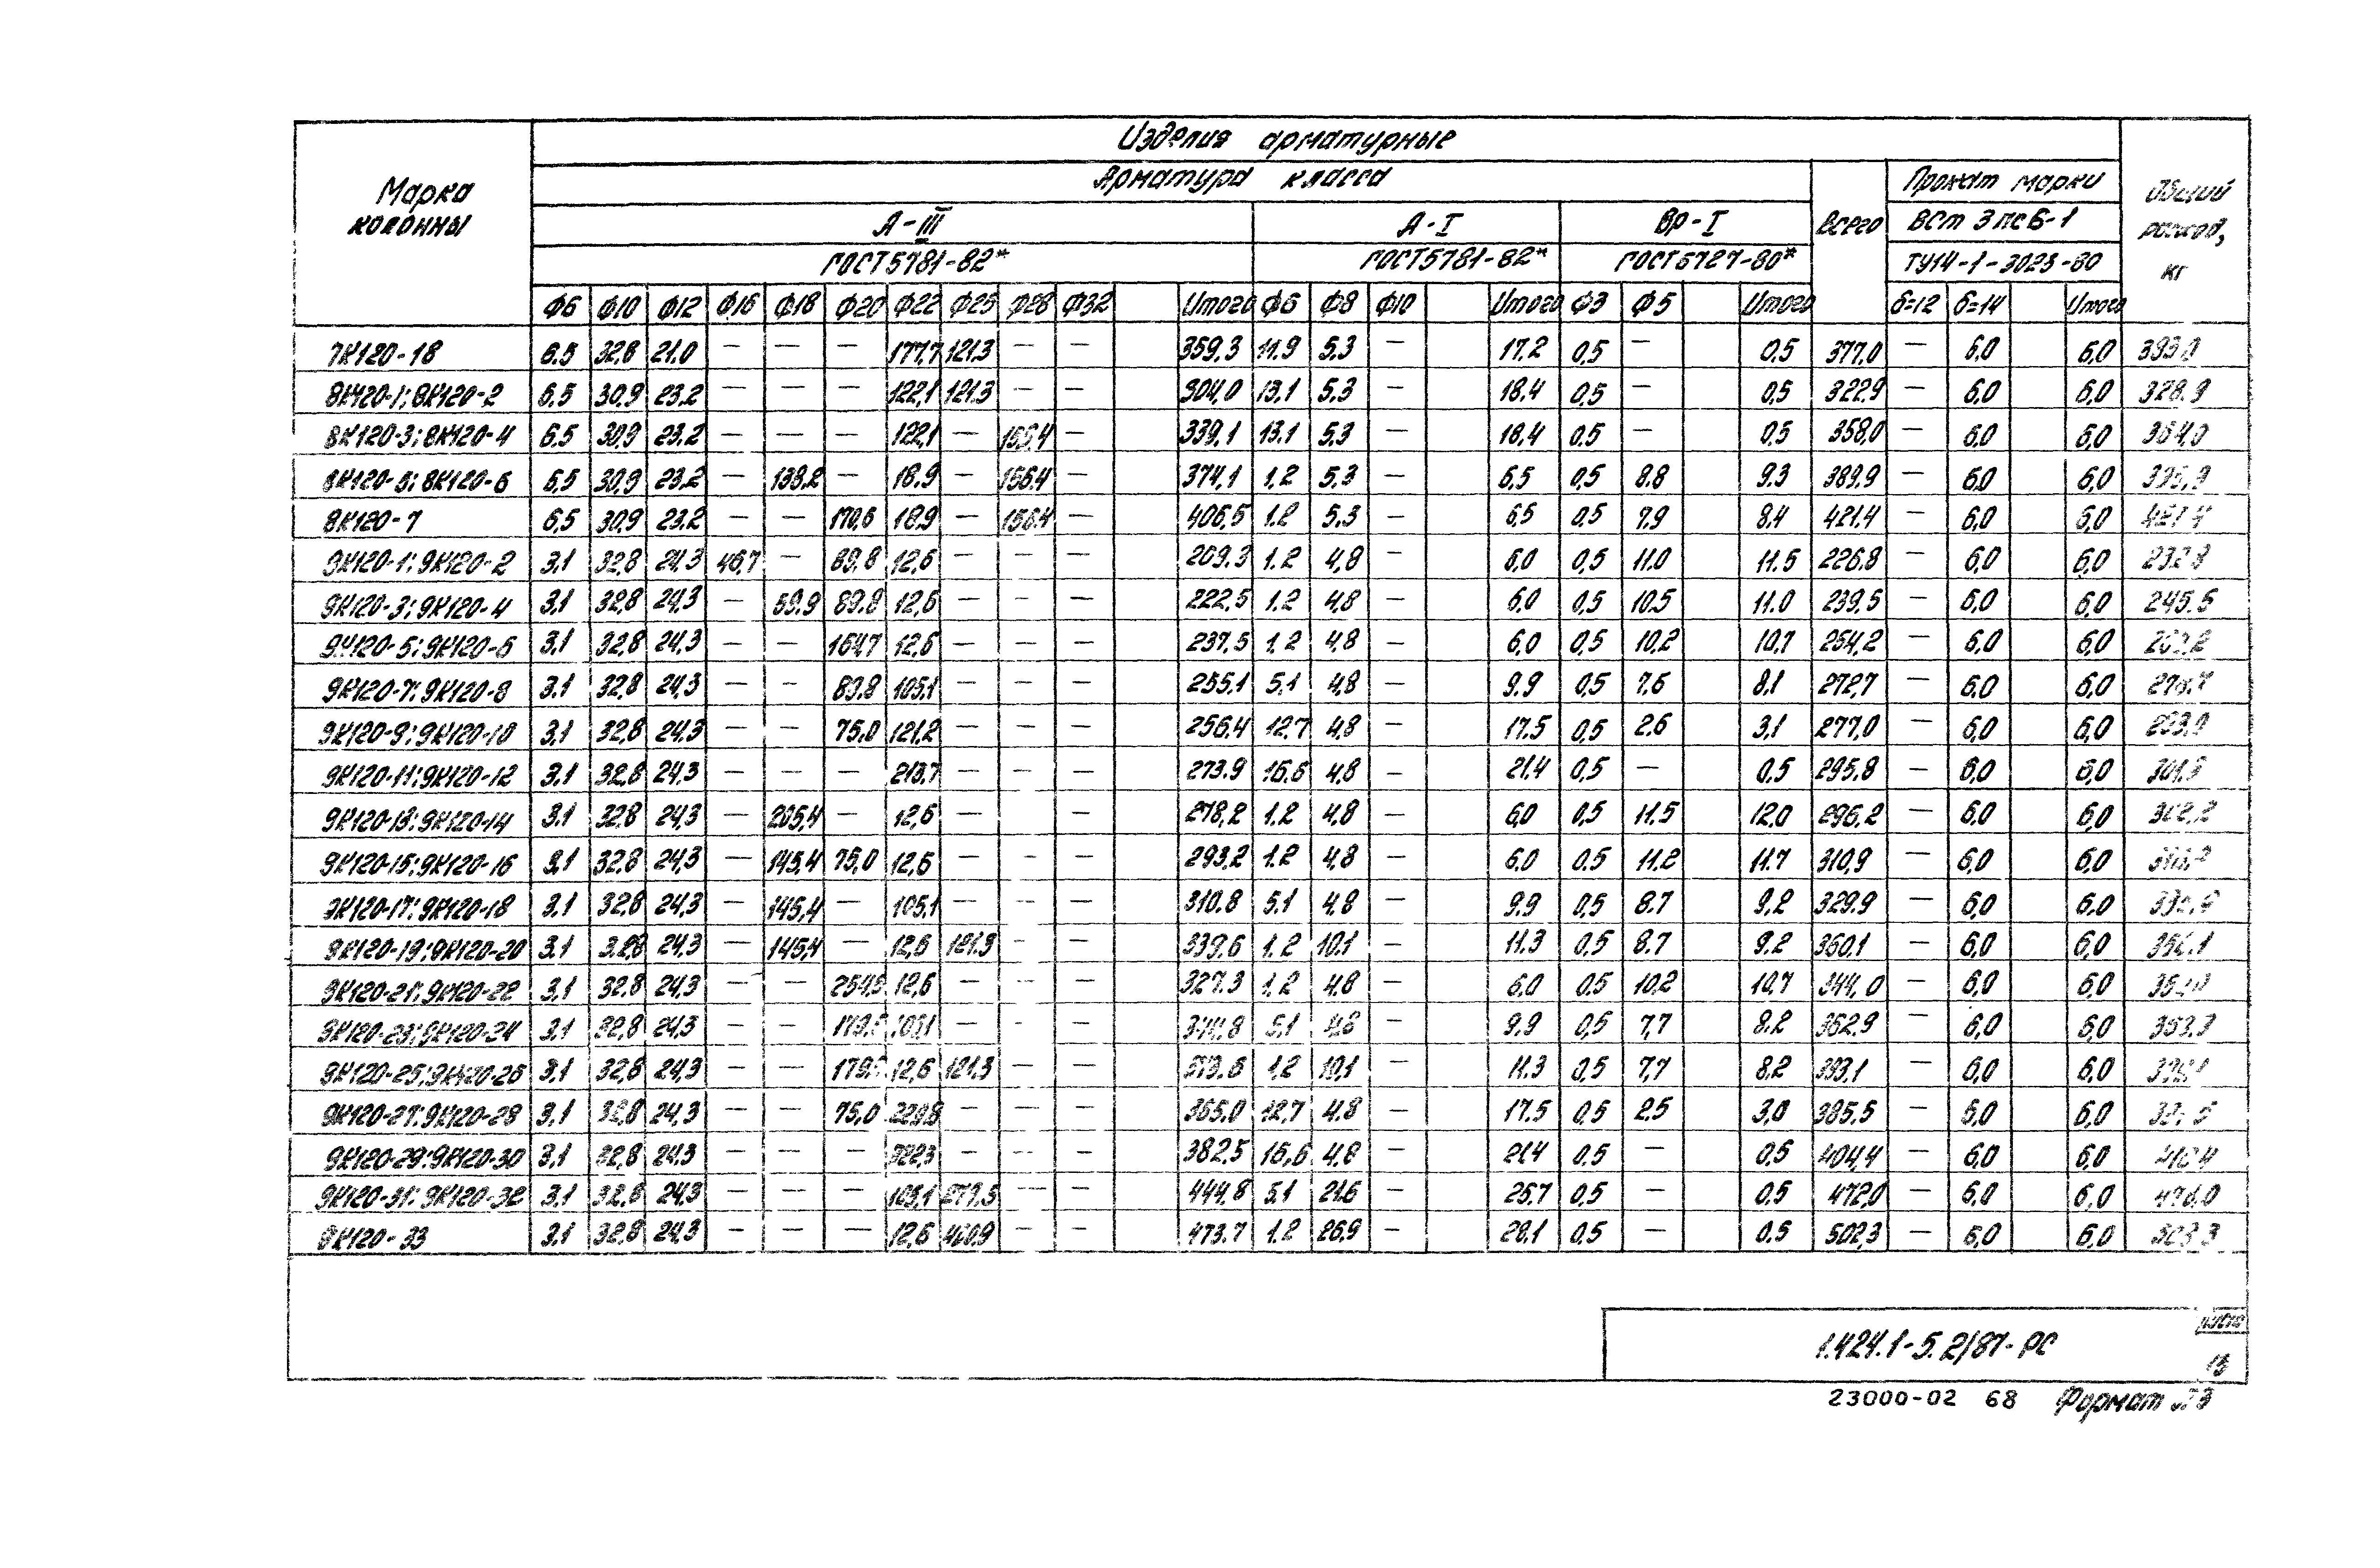 Изделия арматурные
Марка колонны
Арматура класса
Всего
Прокат марки
Общий расход, кг
А-III
А-I
Вр-I
ВСт 3 пс 6-1
ГОСТ 5781-82*
ГОСТ 5781-82*
ГОСТ 6727-80*
ТУ14-1-3023-80
Ф6 Ф10 Ф12 Ф16 Ф18 Ф20 Ф22 Ф25 Ф28 Ф32 Итого Ф6 Ф8 Ф10 Итого Ф3 Ф5 Итого б=12 б=14 Итого
7К120-18 6.5 32.8 21.0 — — — 177,7 121.3 — — 359.3 11.9 5.3 — 17.2 0,5 — 0.5 377,0 — 6,0 6,0 383.0
8К120-1; 8К120-2 6,5 30,9 23.2 — — — 122,1 121.3 — — 304,0 13.1 5.3 — 18.4 0,5 — 0,5 322.9 — 6,0 6,0 328.9
8К120-3; 8К120-4 6.5 30,9 23.2 — — — 122,1 — 156.4 — 339,1 13.1 5.3 — 18.4 0.5 — 0,5 358,0 — 6,0 6,0 364,0
8К120-5; 8К120-6 6,5 30,9 23,2 — 139.2 — 18.9 — 156.4 — 374,1 1.2 5.3 — 6,5 0,5 8.8 9.3 389.9 — 6,0 6,0 395,9
8К120-7 6,5 30,9 23.2 — — 170,6 18,9 — 156.4 — 406,5 1.2 5.3 — 6,5 0,5 7.9 8.4 421.4 — 6,0 6,0 427.4
9К120-1; 9К120-2 3,1 32,8 24,3 46,7 — 89,8 12,6 — — — 209.3 1.2 4,8 — 6,0 0,5 11.0 11.5 226,8 — 6,0 6,0 232.8
9К120-3; 9К120-4 3,1 32,8 24,3 — 59.9 89.8 12,6 — — — 222,5 1.2 4,8 — 6,0 0,5 10.5 11.0 239,5 — 6,0 6,0 245.5
9К120-5; 9К120-6 3.1 32,8 24,3 — — 164,7 12,6 — — — 237,5 1.2 4,8 — 6,0 0,5 10,2 10,7 254,2 — 6,0 6,0 260.2
9К120-7; 9К120-8 3.1 32,8 24,3 — — 89,8 105,1 — — — 255,1 5,1 4,8 — 9.9 0,5 7.6 8,1 272,7 — 6,0 6,0 278.7
9К120-9; 9К120-10 3,1 32,8 24.3 — — 75,0 121.2 — — — 256.4 12,7 4.8 — 17.5 0,5 2.6 3,1 277,0 — 6,0 6,0 283,0
9К120-11; 9К120-12 3.1 32,8 24,3 — — — 213.7 — — — 273.9 16.6 4,8 — 21,4 0,5 — 0,5 295,8 — 6,0 6,0
9К120-13; 9К120-14 3.1 32.8 24,3 — 205,4 — 12,6 — — — 278,2 1.2 4,8 — 6,0 0,5 11.5 12.0 296.2 — 6,0 6,0 302,2
9К120-15; 9К120-16 3,1 32.8 24,3 — 145,4 75,0 12,6 — — — 293.2 1.2 4,8 — 6,0 0.5 11.2 11.7 310,9 — 6,0 6,0
9К120-17; 9К120-18 3.1 32,8 24,3 — 145,4 — 105,1 — — — 310.8 5.1 4,8 — 9.9 0,5 8.7 9,2 329.9 — 6,0 6.0 335.9
9К120-19; 9К120-20 3.1 3.28 24,3 — 145,4 — 12,6 121.3 — — 339,6 1.2 10.1 — 11.3 0,5 8.7 9.2 360,1 — 6,0 6,0
9К120-21; 9К120-22 3,1 32.8 24,3 — — 254,5 12,6 — — — 327.3 1.2 4,8 — 6.0 0.5 10,2 10,7 344,0 — 6,0 6,0
9К120-23; 9К120-24 3.1 32,8 24,3 — — 105,1 — — — 5,1 4,8 — 9,9 0,5 7,7 8.2 352.9 — 6,0 6,0
9К120-25; 9К120-26 3.1 32,8 24,3 — — 12,6 121.3 — — 1,2 10,1 — 11.3 0,5 7,7 8,2 — 6,0 6,0
9К120-27; 9К120-28 3.1 32,8 24,3 — — 75,0 229,8 — — — 365.0 12,7 4.8 — 17.5 0,5 2.5 3,0 385.5 — 6,0 6,0
9К120-29; 9К120-30 3,1 32,8 24.3 — — — 322,3 — — — 382,5 16,6 4.8 — 21.4 0.5 — 0,5 404,4 — 6,0 6,0 410.4
9К120-31; 9К120-32 3.1 32,8 24,3 — — — 105,1 279,5 — — 444,8 5.1 21.6 — 26.7 0,5 — 0,5 472,0 — 6,0 6,0 478.0
9К120-33 3.1 32,8 24,3 — — — 12,6 400,9 — — 473.7 1.2 26,9 — 28,1 0.5 — 0.5 502,3 — 6,0 6,0
1.424.1-5.2/87-РС
лист
13
23000-02 68 Формат А3